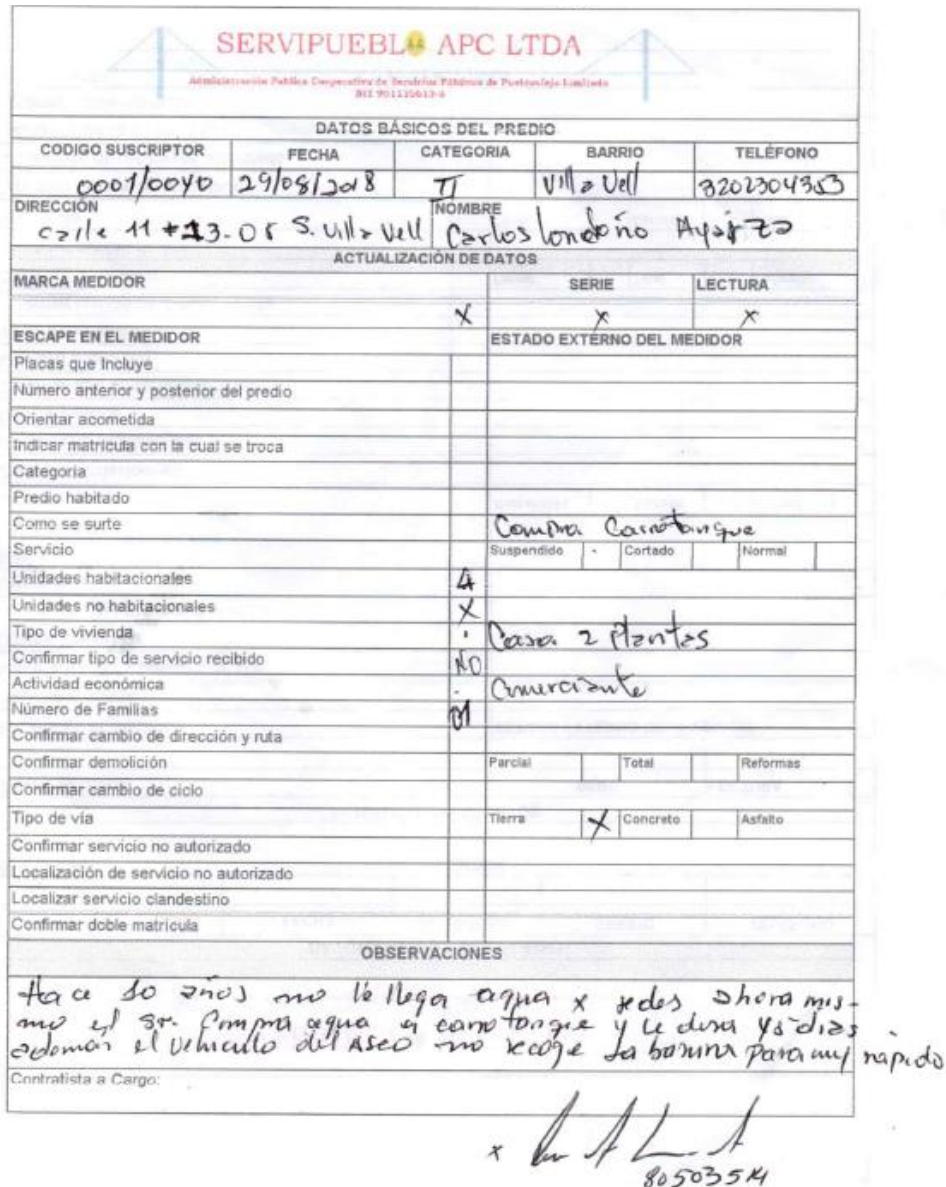 SERVIPUEBLO APC LTDA
Administración Pública Cooperativa de Servicios Públicos de Limitada
NIT
DATOS BÁSICOS DEL PREDIO
CODIGO SUSCRIPTOR FECHA CATEGORIA BARRIO TELÉFONO
0001/0040 29/08/2018 II Villa Vell 3202304353
DIRECCIÓN NOMBRE
calle 11 # 13-05 S. Villa Vell Carlos Londoño
ACTUALIZACIÓN DE DATOS
MARCA MEDIDOR SERIE LECTURA
X X X
ESCAPE EN EL MEDIDOR ESTADO EXTERNO DEL MEDIDOR
Placas que Incluye
Numero anterior y posterior del predio
Orientar acometida
Indicar matricula con la cual se troca
Categoria
Predio habitado
Como se surte Compra Carrotanque
Servicio Suspendido Cortado Normal
Unidades habitacionales 4
Unidades no habitacionales X
Tipo de vivienda Casa 2 Plantas
Confirmar tipo de servicio recibido NO
Actividad económica Comerciante
Número de Familias 01
Confirmar cambio de dirección y ruta
Confirmar demolición Parcial Total Reformas
Confirmar cambio de ciclo
Tipo de vía Tierra X Concreto Asfalto
Confirmar servicio no autorizado
Localización de servicio no autorizado
Localizar servicio clandestino
Confirmar doble matricula
OBSERVACIONES
Hace 10 años no le llega agua x redes ahora mis-
mo el Sr. Compra agua en carrotanque y le dura dias
ademas el vehiculo del aseo no recoge la basura pasa muy rápido
Contratista a Cargo:
x